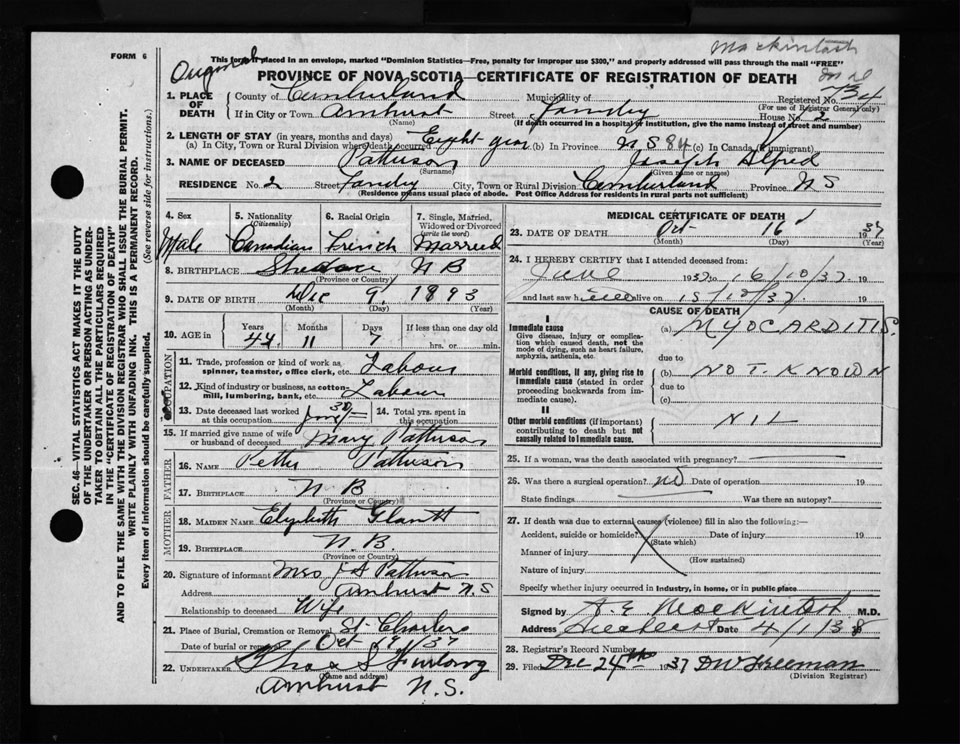 Mackintosh
FORM 6
This form if placed in an envelope, marked "Dominion Statistics—Free, penalty for improper use $300," and properly addressed will pass through the mail "FREE"
Original
PROVINCE OF NOVA SCOTIA—CERTIFICATE OF REGISTRATION OF DEATH
1. PLACE OF DEATH
County of Cumberland Municipality of Registered No. 734
(For use of Registrar General only)
If in City or Town Amherst Street House No. 2
(Name) (If death occurred in a hospital or institution, give the name instead of street and number)
2. LENGTH OF STAY (in years, months and days)
(a) In City, Town or Rural Division where death occurred Eight year (b) In Province N S (c) In Canada (if immigrant)
3. NAME OF DECEASED Patterson Joseph Alfred
(Surname) (Given name or names)
RESIDENCE No. 2 Street City, Town or Rural Division Cumberland Province N S
(Residence means usual place of abode. Post Office Address for residents in rural parts not sufficient)
4. Sex Male
5. Nationality (Citizenship) Canadian
6. Racial Origin French
7. Single, Married, Widowed or Divorced (write the word) Married
8. BIRTHPLACE N B
(Province or Country)
9. DATE OF BIRTH Dec 9 1893
(Month) (Day) (Year)
10. AGE in Years Months Days If less than one day old
44 11 7 hrs. or min.
OCCUPATION
11. Trade, profession or kind of work as spinner, teamster, office clerk, etc. Labour
12. Kind of industry or business, as cotton-mill, lumbering, bank, etc. Labour
13. Date deceased last worked at this occupation
14. Total yrs. spent in this occupation
15. If married give name of wife or husband of deceased Mary Patterson
FATHER
16. NAME Patterson
17. BIRTHPLACE N B
(Province or Country)
MOTHER
18. MAIDEN NAME Elizabeth
19. BIRTHPLACE N. B.
(Province or Country)
20. Signature of informant Mrs J A Patterson
Address Amherst N. S
Relationship to deceased Wife
21. Place of Burial, Cremation or Removal St. Charles
Date of burial or removal Oct 19 1937
22. UNDERTAKER Furlong
(Name and address)
Amherst N. S.
MEDICAL CERTIFICATE OF DEATH
23. DATE OF DEATH Oct 16 1937
(Month) (Day) (Year)
24. I HEREBY CERTIFY that I attended deceased from:
June 1937 to 16/10/37. 19
and last saw h alive on 15/10/37. 19
CAUSE OF DEATH
I
Immediate cause
Give disease, injury or complication which caused death, not the mode of dying, such as heart failure, asphyxia, asthenia, etc.
(a) MYOCARDITIS
due to
Morbid conditions, if any, giving rise to immediate cause (stated in order proceeding backwards from immediate cause).
(b) NOT. KNOWN
due to
(c)
II
Other morbid conditions (if important) contributing to death but not causally related to immediate cause.
NIL
25. If a woman, was the death associated with pregnancy?
26. Was there a surgical operation? no Date of operation 19
State findings Was there an autopsy?
27. If death was due to external causes (violence) fill in also the following:—
Accident, suicide or homicide? Date of injury 19
(State which)
Manner of injury
(How sustained)
Nature of injury
Specify whether injury occurred in industry, in home, or in public place
Signed by A. E Mackintosh M.D.
Address Amherst Date 4/1/38
28. Registrar's Record Number
29. Filed Dec 24th 1937 DW Freeman
(Division Registrar)
SEC. 46—VITAL STATISTICS ACT MAKES IT THE DUTY
OF THE UNDERTAKER OR PERSON ACTING AS UNDER-
TAKER TO OBTAIN ALL THE PARTICULARS REQUIRED
IN THE "CERTIFICATE OF REGISTRATION OF DEATH"
AND TO FILE THE SAME WITH THE DIVISION REGISTRAR WHO SHALL ISSUE THE BURIAL PERMIT.
WRITE PLAINLY WITH UNFADING INK. THIS IS A PERMANENT RECORD.
Every item of information should be carefully supplied. (See reverse side for instructions.)